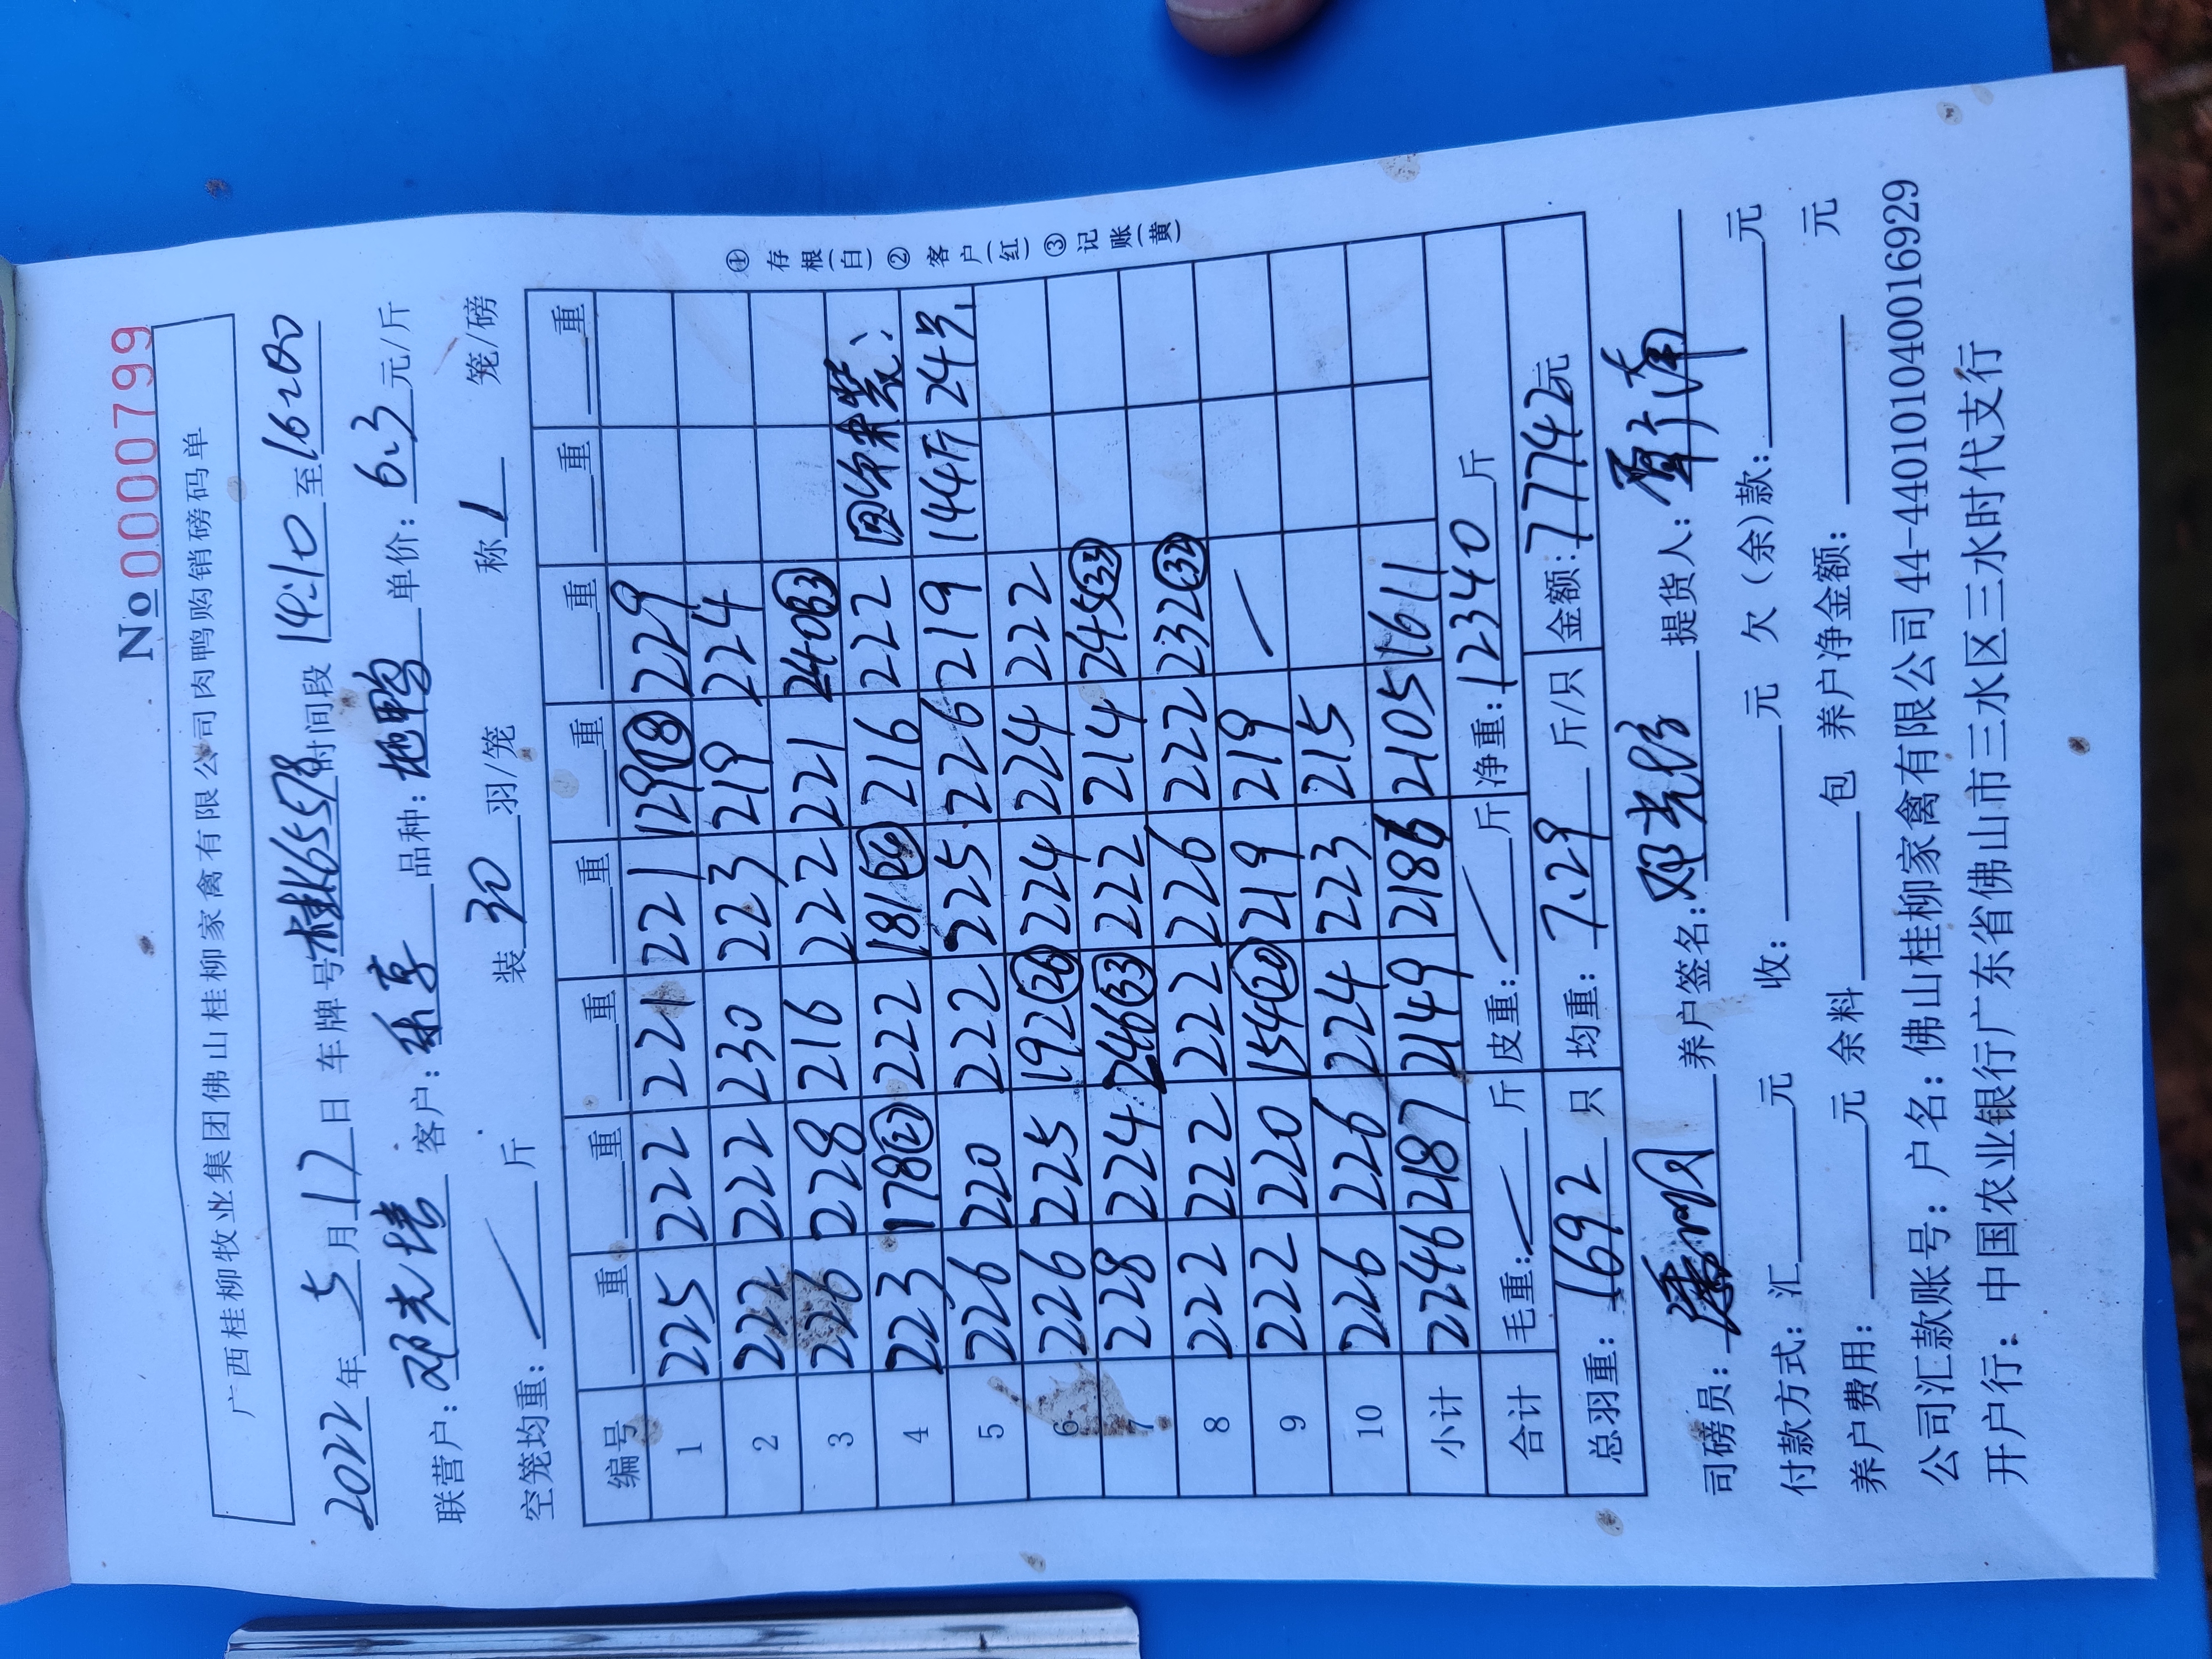 No 0000799
广西桂柳牧业集团佛山桂柳家禽有限公司肉鸭购销磅码单
2022年5月17日 车牌号桂K65578时间段14:10至16:00
联营户: 邓光清 客户: 品种: 地鸭 单价: 6.3元/斤
空笼均重: 斤 装30羽/笼 称1笼/磅
编号 重 重 重 重 重 重 重 重
1 225 222 221 221 129(18) 229
2 222 222 230 223 219 224
3 226 228 216 222 221 240(33)
4 223 178(27) 222 181(24) 216 222
5 226 220 222 225 226 219 144斤 24只
6 226 225 192(26) 224 224 222
7 228 224 246(33) 222 214 245(33)
8 222 222 222 226 222 232(32)
9 222 220 154(20) 219 219
10 226 226 224 223 215
小计 2246 2187 2149 2186 2105 1611
合计 毛重: 斤 皮重: 斤 净重: 12340斤
总羽重: 1692只 均重: 7.29斤/只 金额: 77742元
①存根(白)②客户(红)③记账(黄)
司磅员: 养户签名: 提货人:
付款方式: 汇 元 收: 元 欠(余)款: 元
养户费用: 元 余料 包 养户净金额: 元
公司汇款账号: 户名: 佛山桂柳家禽有限公司44-440101040016929
开户行: 中国农业银行广东省佛山市三水区三水时代支行